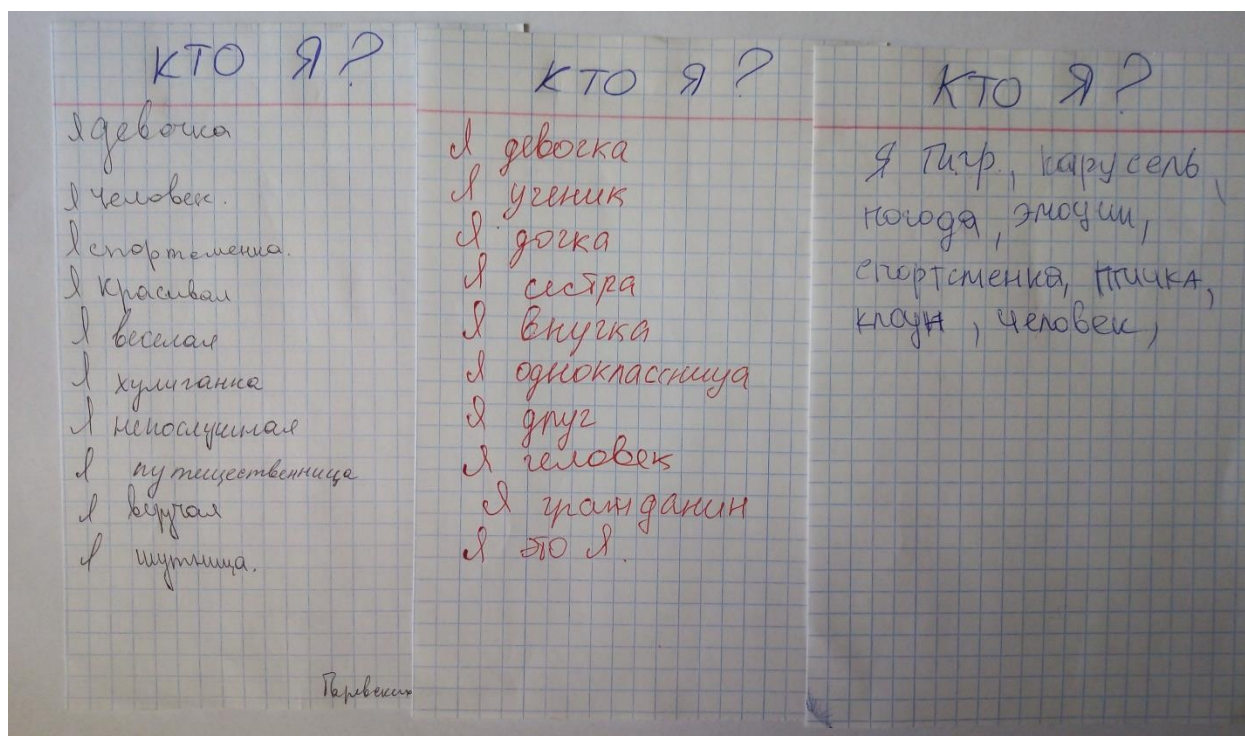 КТО Я?
Я девочка
Я человек.
Я спортсменка.
Я красивая
Я веселая
Я хулиганка
Я непослушная
Я путешественница
Я
Я шутница.
КТО Я?
Я девочка
Я ученик
Я дочка
Я сестра
Я внучка
Я одноклассница
Я друг
Я человек
Я гражданин
Я это Я.
КТО Я?
Я Тигр, карусель,
погода, эмоции,
спортсменка, птичка,
клоун, человек,